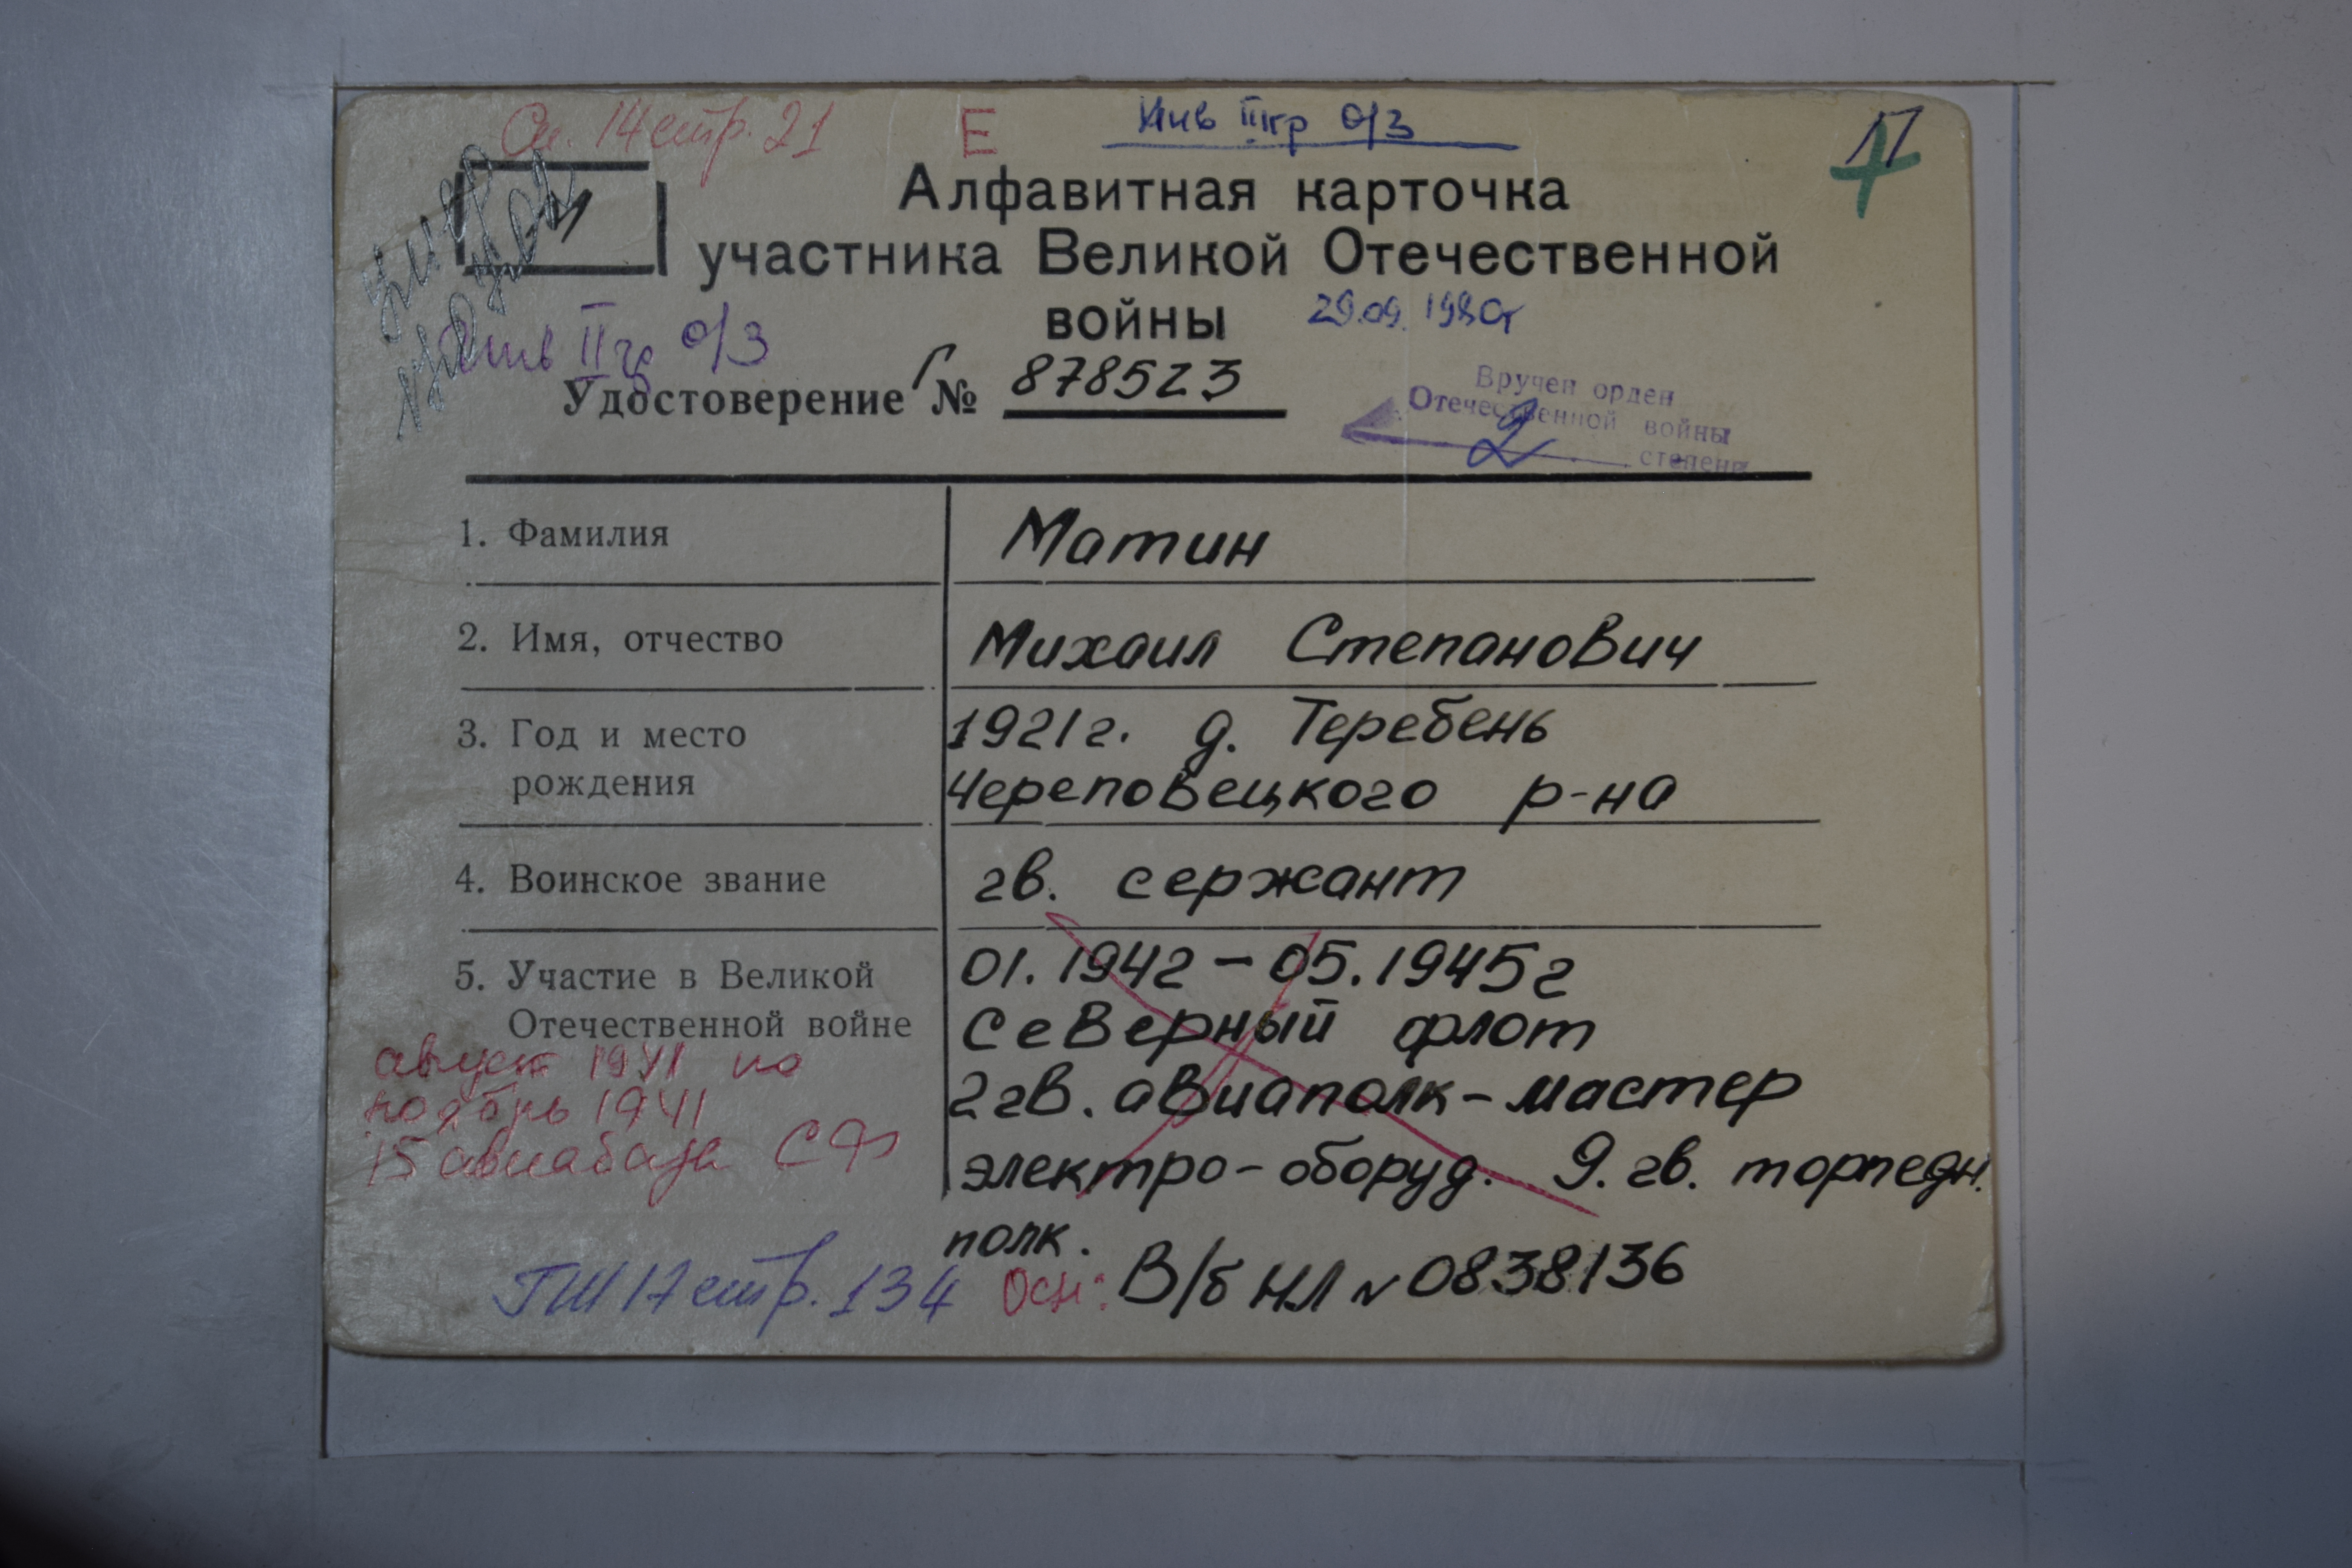 Сп. 14 стр. 21 Е Инв III гр о/з П
Алфавитная карточка
участника Великой Отечественной
войны 29.09.1980г
Инв II гр о/з
Удостоверение Г № 878523
Вручен орден
Отечественной войны
2 степени
1. Фамилия Матин
2. Имя, отчество Михаил Степанович
3. Год и место 1921г. д. Теребень
рождения Череповецкого р-на
4. Воинское звание гв. сержант
5. Участие в Великой 01.1942 – 05.1945г
Отечественной войне Северный флот
август 1941 по 2 гв. авиаполк – мастер
ноябрь 1941
15 авиабаза СФ электро-оборуд. 9. гв. торпедн.
полк.
ГШ 17 стр. 134 Осн: В/б НЛ № 0838136